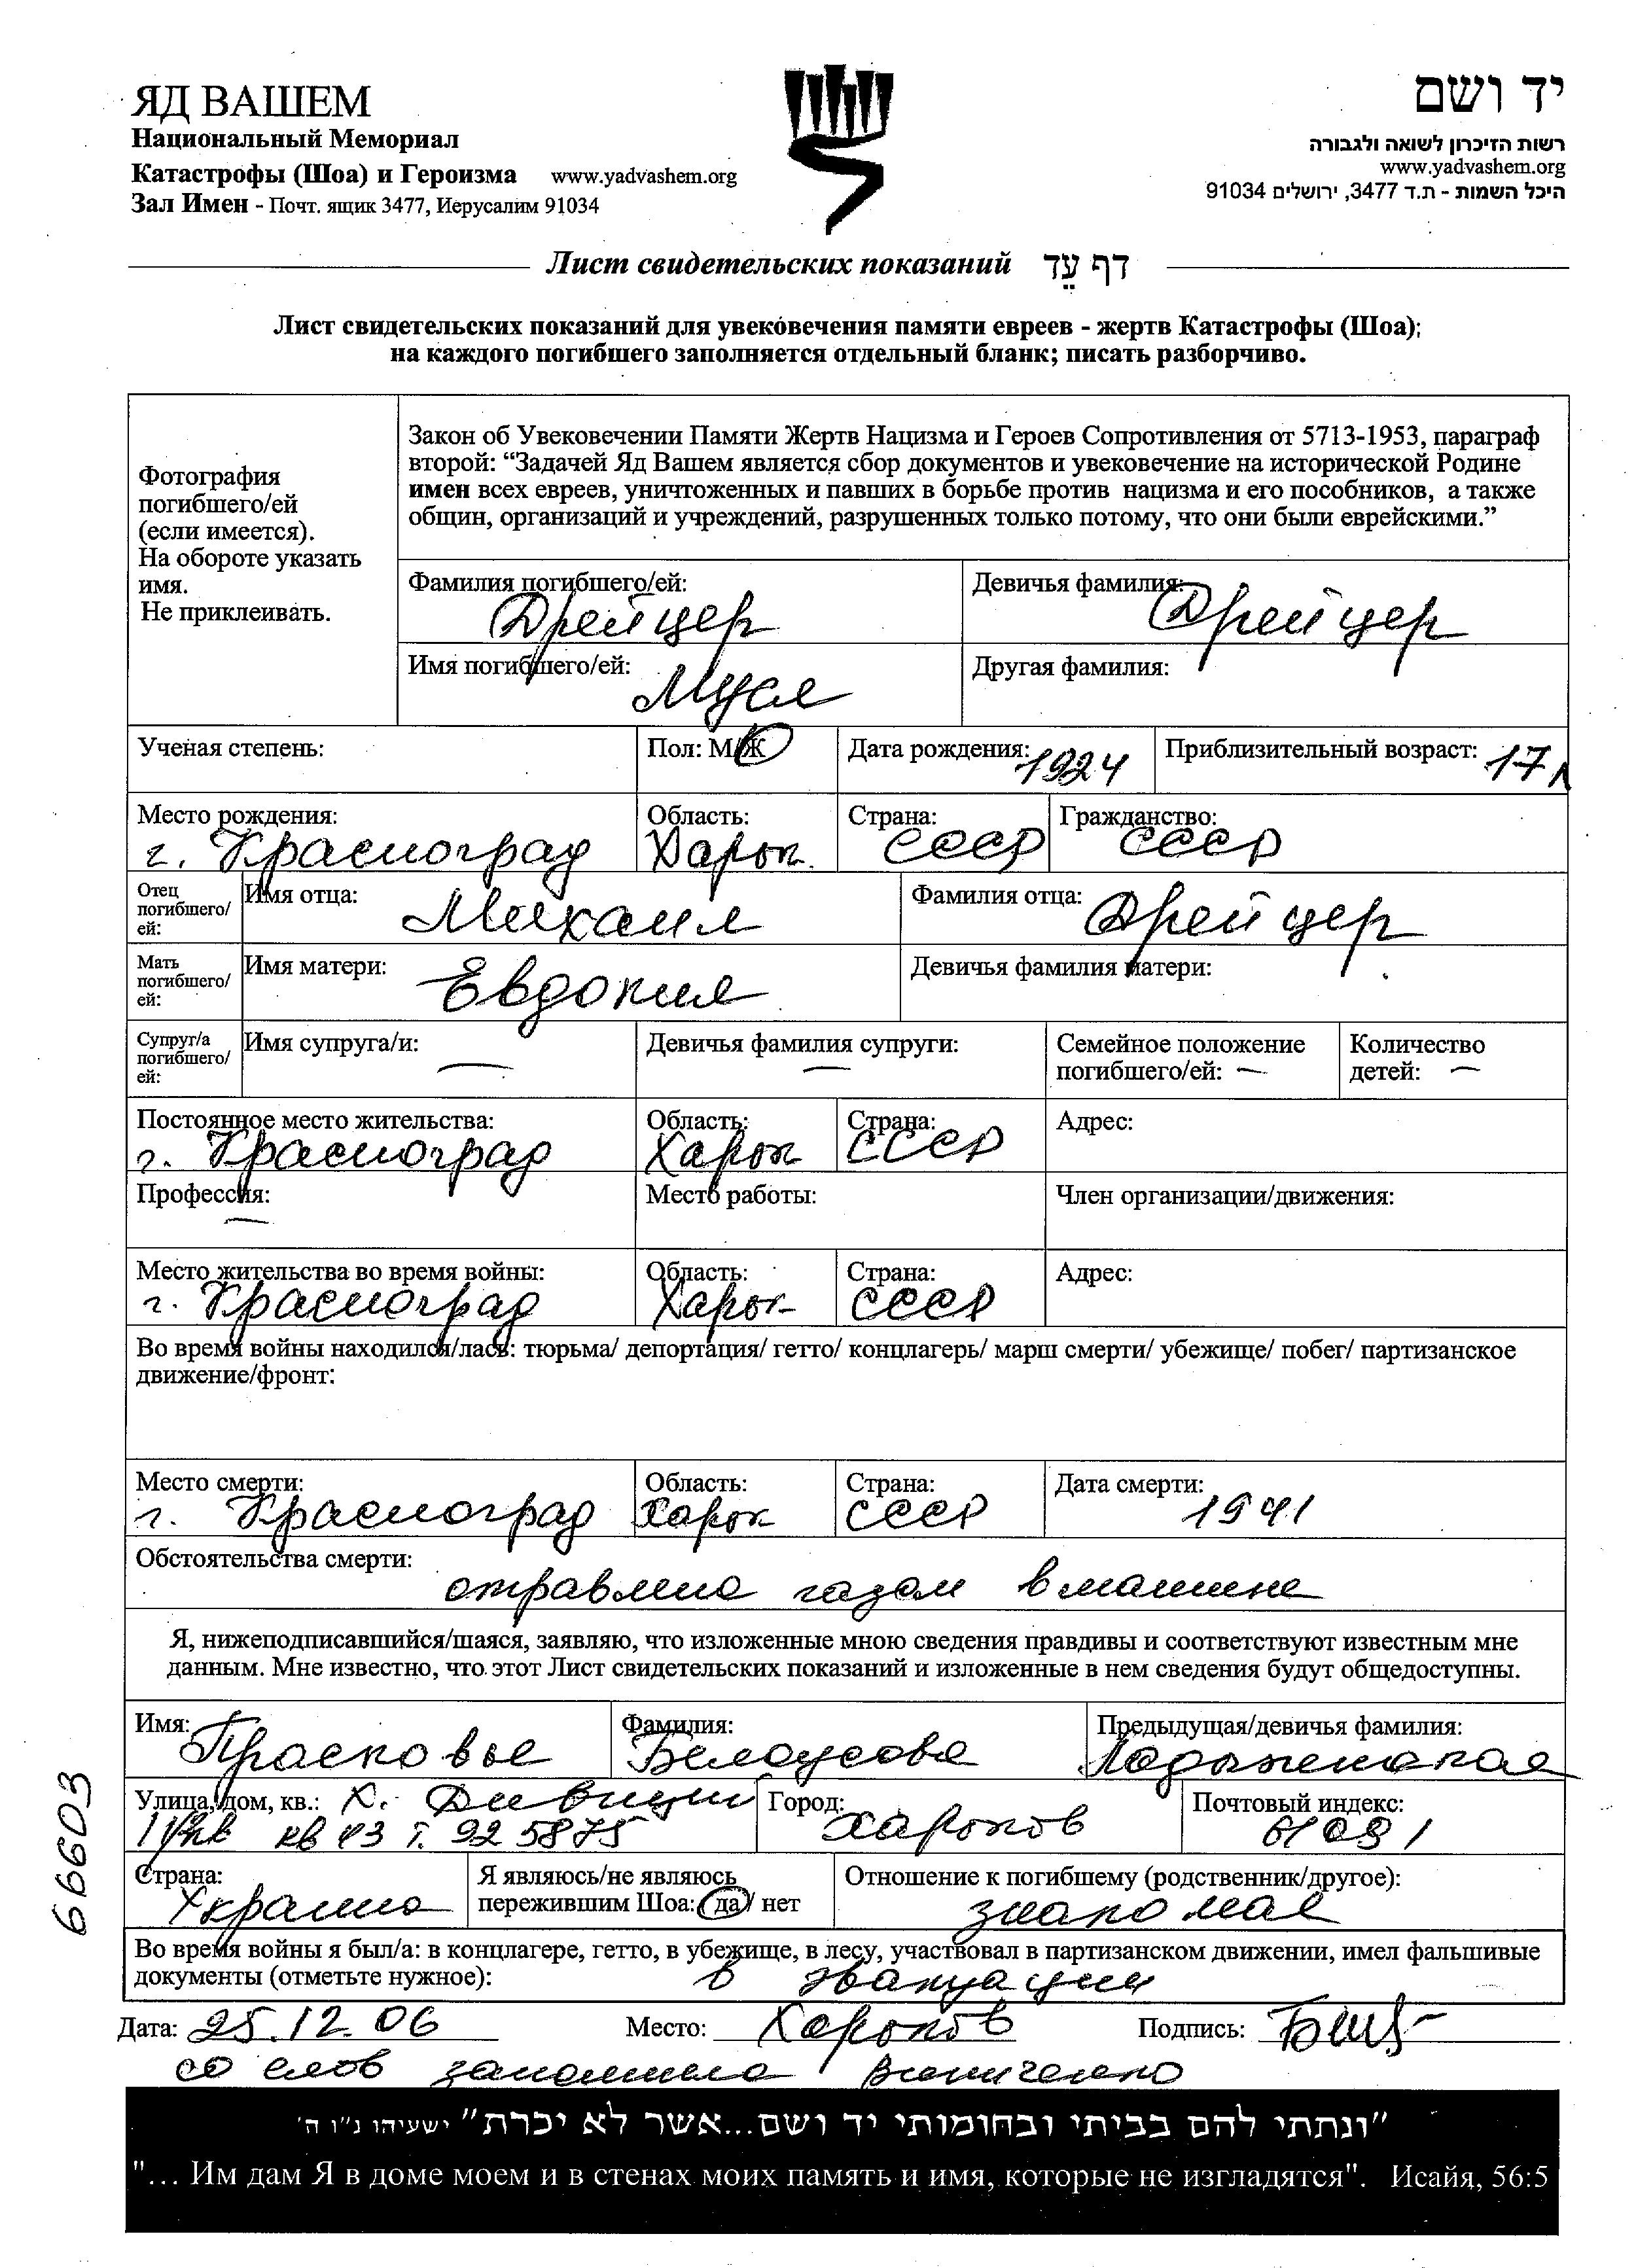 ЯД ВАШЕМ
Национальный Мемориал
Катастрофы (Шоа) и Героизма www.yadvashem.org
Зал Имен - Почт. ящик 3477, Иерусалим 91034
יד ושם
רשות הזיכרון לשואה ולגבורה
www.yadvashem.org
היכל השמות - ת.ד 3477, ירושלים 91034
Лист свидетельских показаний דף עֵד
Лист свидетельских показаний для увековечения памяти евреев - жертв Катастрофы (Шоа);
на каждого погибшего заполняется отдельный бланк; писать разборчиво.
Фотография
погибшего/ей
(если имеется).
На обороте указать
имя.
Не приклеивать.
Закон об Увековечении Памяти Жертв Нацизма и Героев Сопротивления от 5713-1953, параграф
второй: “Задачей Яд Вашем является сбор документов и увековечение на исторической Родине
имен всех евреев, уничтоженных и павших в борьбе против нацизма и его пособников, а также
общин, организаций и учреждений, разрушенных только потому, что они были еврейскими.”
Фамилия погибшего/ей: Дрейцер
Девичья фамилия: Дрейцер
Имя погибшего/ей: Муся
Другая фамилия:
Ученая степень:
Пол: М/Ж
Дата рождения: 1924
Приблизительный возраст: 17 л
Место рождения: г. Красноград
Область: Харьк.
Страна: СССР
Гражданство: СССР
Отец погибшего/ей:
Имя отца: Михаил
Фамилия отца: Дрейцер
Мать погибшего/ей:
Имя матери: Евдокия
Девичья фамилия матери:
Супруг/а погибшего/ей:
Имя супруга/и: —
Девичья фамилия супруги: —
Семейное положение погибшего/ей: —
Количество детей: —
Постоянное место жительства: г. Красноград
Область: Харьк
Страна: СССР
Адрес:
Профессия: —
Место работы:
Член организации/движения:
Место жительства во время войны: г. Красноград
Область: Харьк
Страна: СССР
Адрес:
Во время войны находился/лась: тюрьма/ депортация/ гетто/ концлагерь/ марш смерти/ убежище/ побег/ партизанское
движение/фронт:
Место смерти: г. Красноград
Область: Харьк
Страна: СССР
Дата смерти: 1941
Обстоятельства смерти: отравлена газом в машине
Я, нижеподписавшийся/шаяся, заявляю, что изложенные мною сведения правдивы и соответствуют известным мне
данным. Мне известно, что этот Лист свидетельских показаний и изложенные в нем сведения будут общедоступны.
Имя: Прасковья
Фамилия: Белоусова
Предыдущая/девичья фамилия: Ладыженская
Улица, дом, кв.: Х. Дивизии
кв 43 т. 925875
Город: Харьков
Почтовый индекс: 61091
Страна: Украина
Я являюсь/не являюсь
пережившим Шоа: да/ нет
Отношение к погибшему (родственник/другое): знакомая
Во время войны я был/а: в концлагере, гетто, в убежище, в лесу, участвовал в партизанском движении, имел фальшивые
документы (отметьте нужное): в эвакуации
Дата: 25.12.06 Место: Харьков Подпись:
со слов заполнила Винниченко
66603
"ונתתי להם בביתי ובחומותי יד ושם...אשר לא יכרת" ישעיהו נ"ו ה'
"... Им дам Я в доме моем и в стенах моих память и имя, которые не изгладятся". Исайя, 56:5